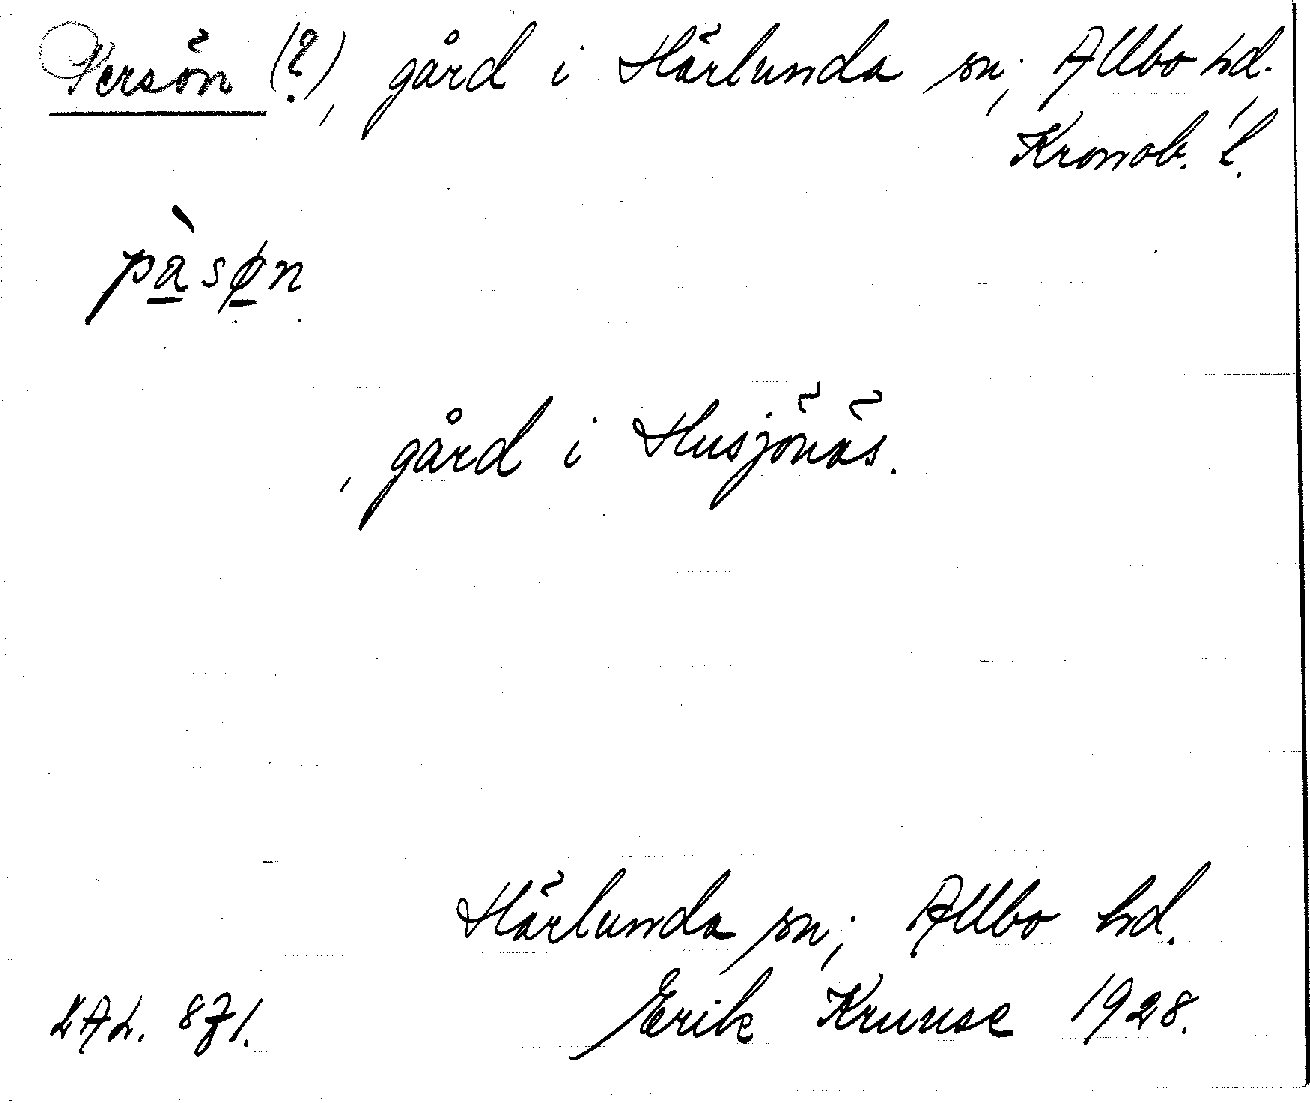 Persön (?), gård i Härlunda sn; Allbo hd.
Kronob. l.
pàsøn
, gård i Husjönäs.
Härlunda sn; Allbo hd.
LAL. 871. Erik Kruuse 1928.